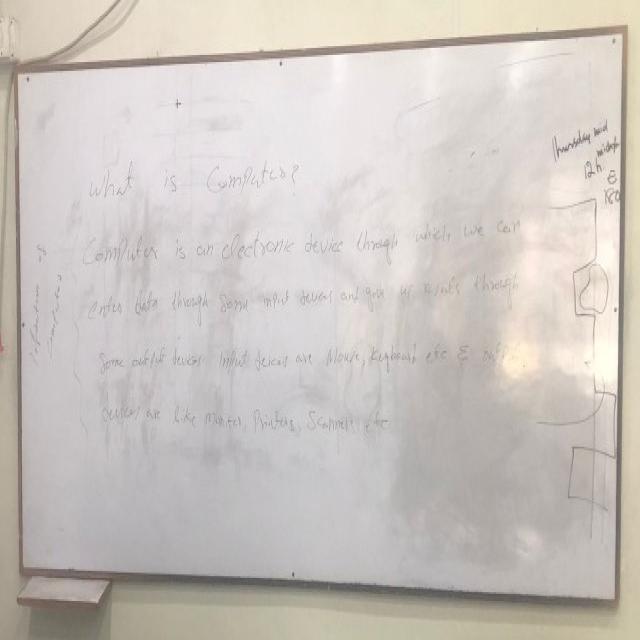 What is Computer?
Computer is an electronic device through which we can
enter data through some input devices and give us results through
some output devices. Input devices are Mouse, Keyboard etc & output
devices are like monitor, Printers, Scanners etc
12
&